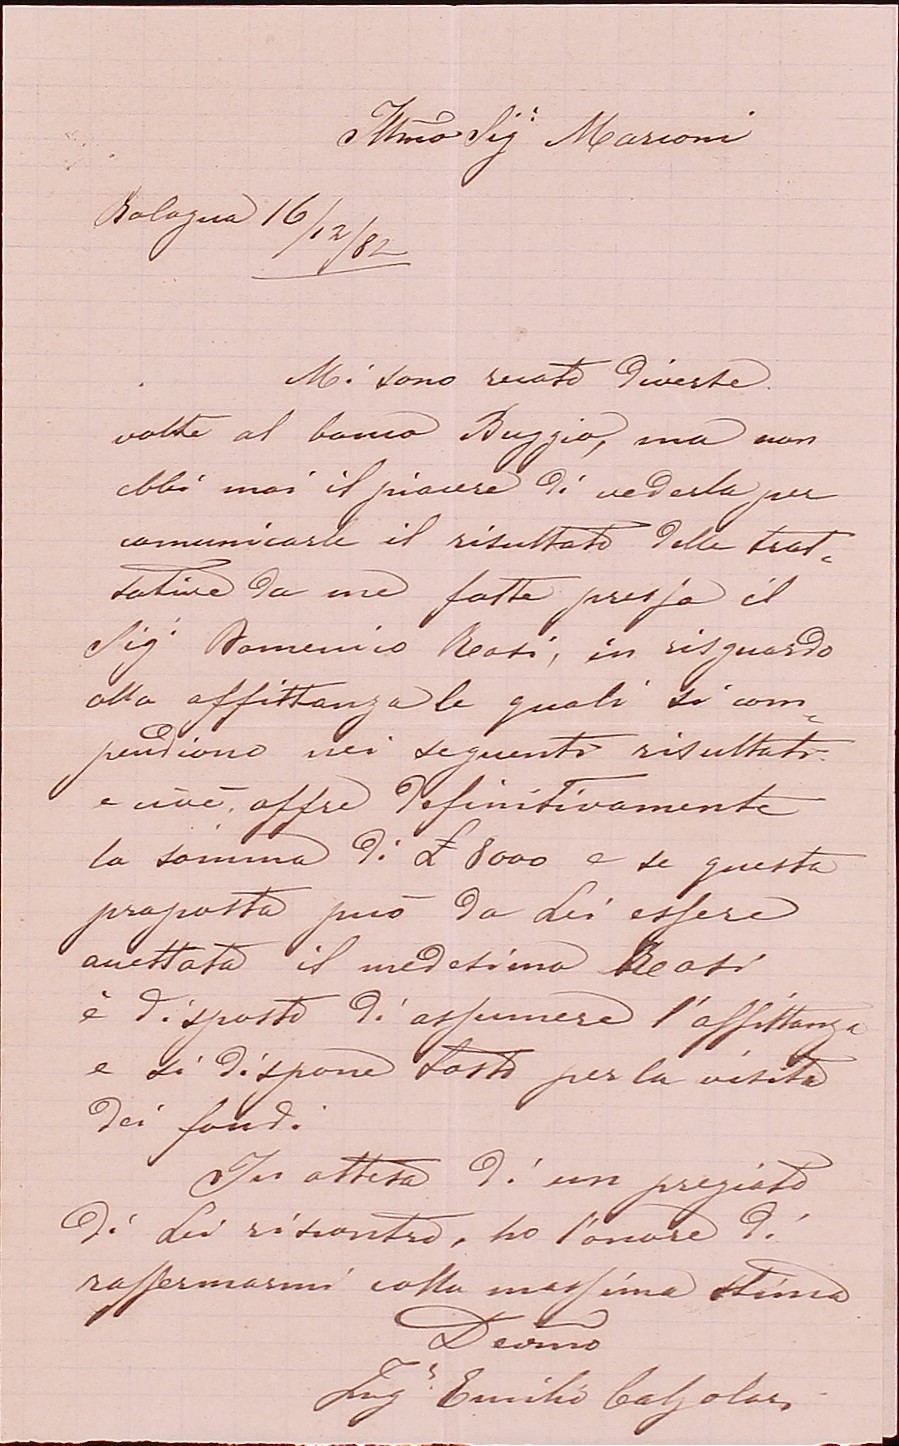 Illmo Sigr Marconi
Bologna 16/12/82
Mi sono recato diverse
volte al banco Buggio, ma non
ebbi mai il piacere di vederla per
comunicarle il risultato delle trat-
tative da me fatte presso il
Sigr Domenico Reasi, in risguardo
alla affittanza le quali si com-
pendiono nei seguenti risultati
e cioè, offre definitivamente
la somma di £ 8000 e se questa
proposta può da Lei essere
accettata il medesimo Reasi
è disposto di assumere l'affittanza
e si dispone tosto per la visita
dei fondi
In attesa di un pregiato
di Lei riscontro, ho l'onore di
raffermarmi colla massima stima
Devmo
Ingr Emilio Calzolari